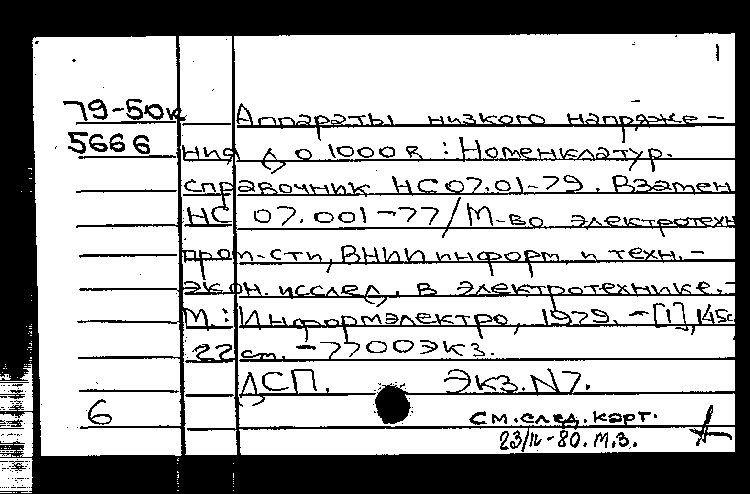 1
79-50к Аппараты низкого напряже-
5666 ния до 1000 в : Номенклатур.
справочник НС 07.01-79. Взамен
НС 07.001-77/М-во электротехн
пром-сти, ВНИИ информ. и техн.-
экон. исслед. в электротехнике.-
М.: Информэлектро, 1979. -[1], 145с
22 см. -7700экз.
ДСП. Экз. N7.
6 см. след. карт.
23/IV-80. М.З.